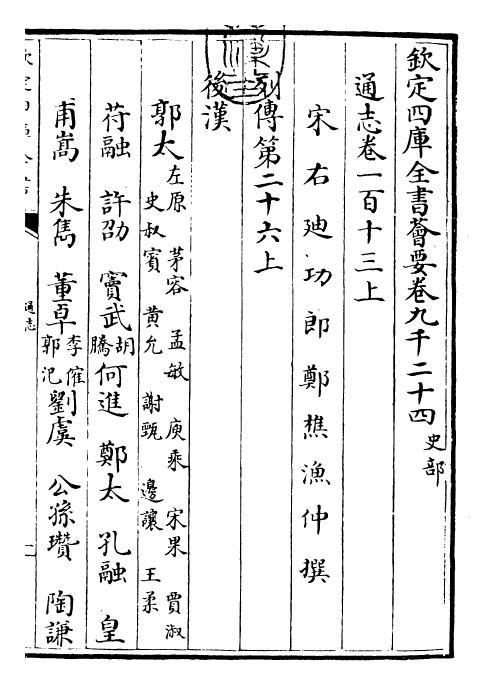 欽定四庫全書薈要卷九千二十四 史部
通志卷一百十三上
宋右廸功郎鄭樵漁仲撰
列傳第二十六上
後漢
郭太 左原 茅容 孟敏 庾乘 宋果 賈淑
史叔賓 黄允 謝甄 邊讓 王柔
苻融 許劭 竇武 胡騰 何進 鄭太 孔融 皇
甫嵩 朱雋 董卓 李傕 郭汜 劉虞 公孫瓚 陶謙
通志
一